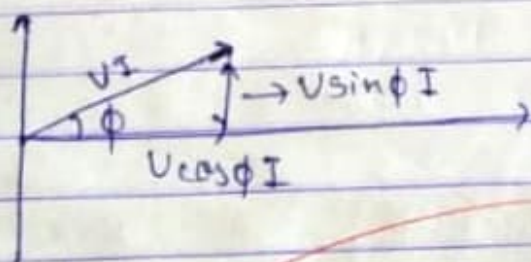 VI
ϕ
→ Vsinϕ I
Vcosϕ I